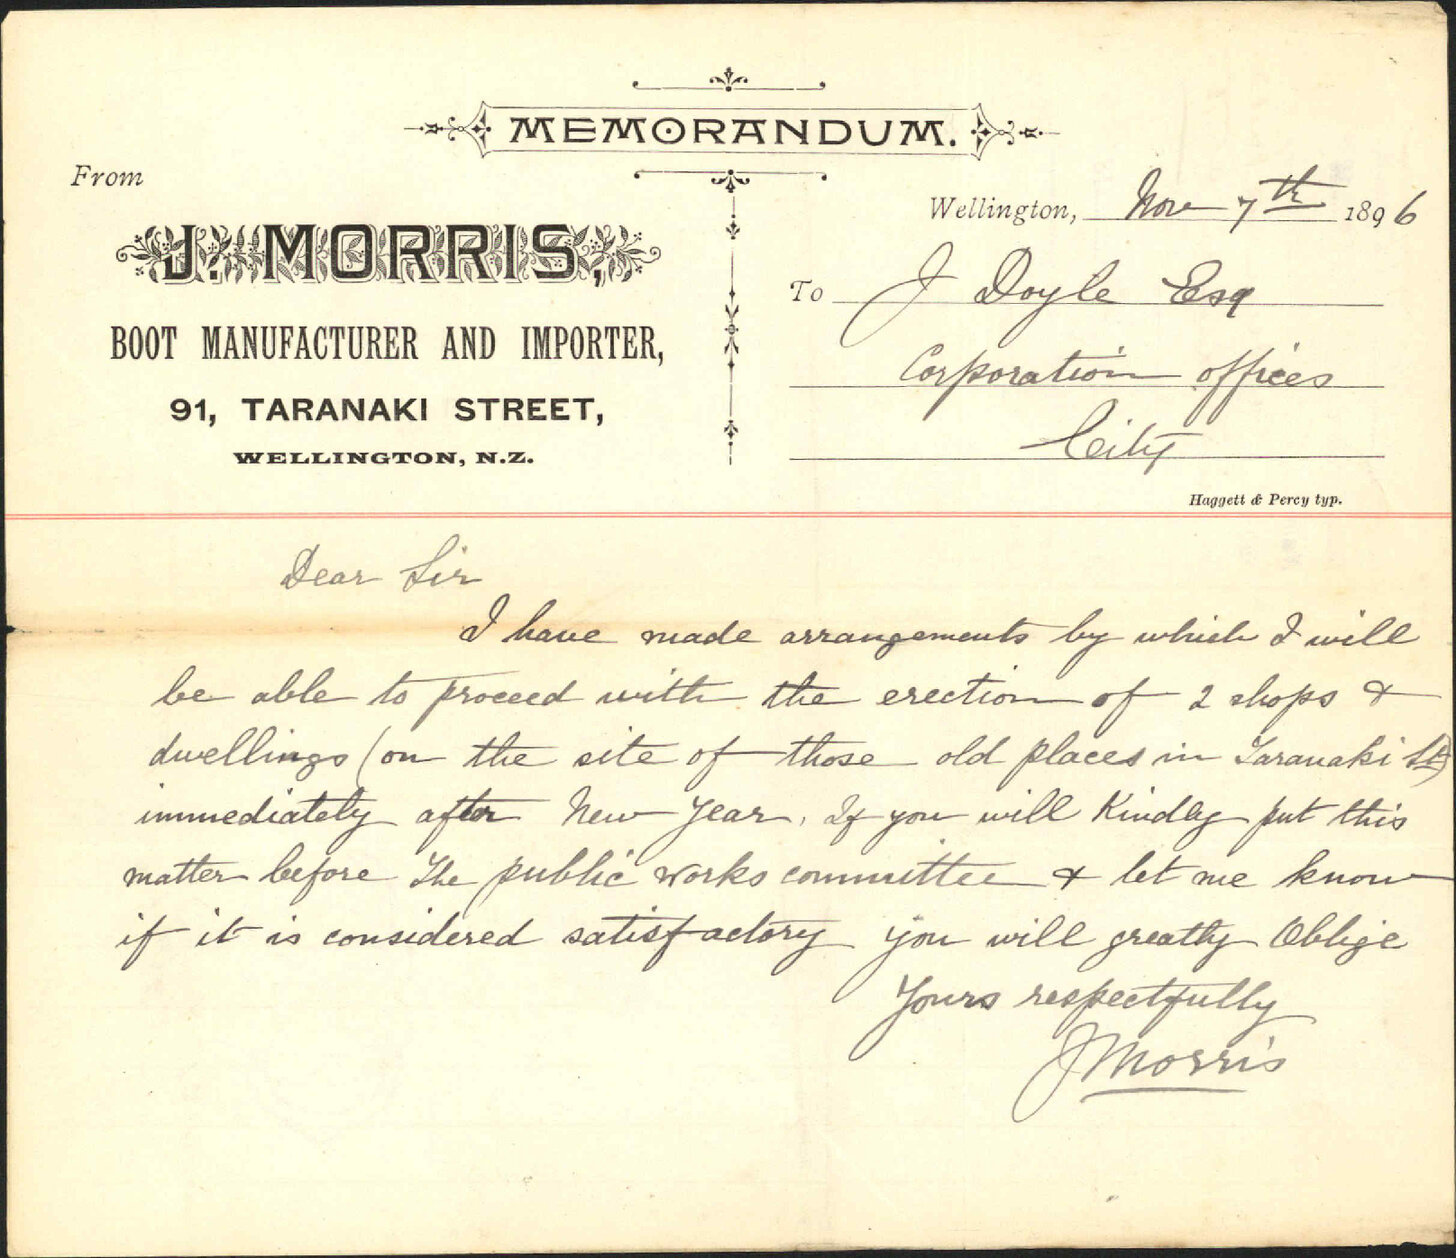 MEMORANDUM.
From
J. MORRIS,
BOOT MANUFACTURER AND IMPORTER,
91, TARANAKI STREET,
WELLINGTON, N.Z.
Wellington, Nov 7th 1896
To J Doyle Esq
Corporation offices
City
Haggett & Percy typ.
Dear Sir
I have made arrangements by which I will
be able to proceed with the erection of 2 shops &
dwellings (on the site of those old places in Taranaki St)
immediately after New Year. If you will Kindly put this
matter before The public works committee & let me know
if it is considered satisfactory you will greatly Oblige
Yours respectfully
J Morris